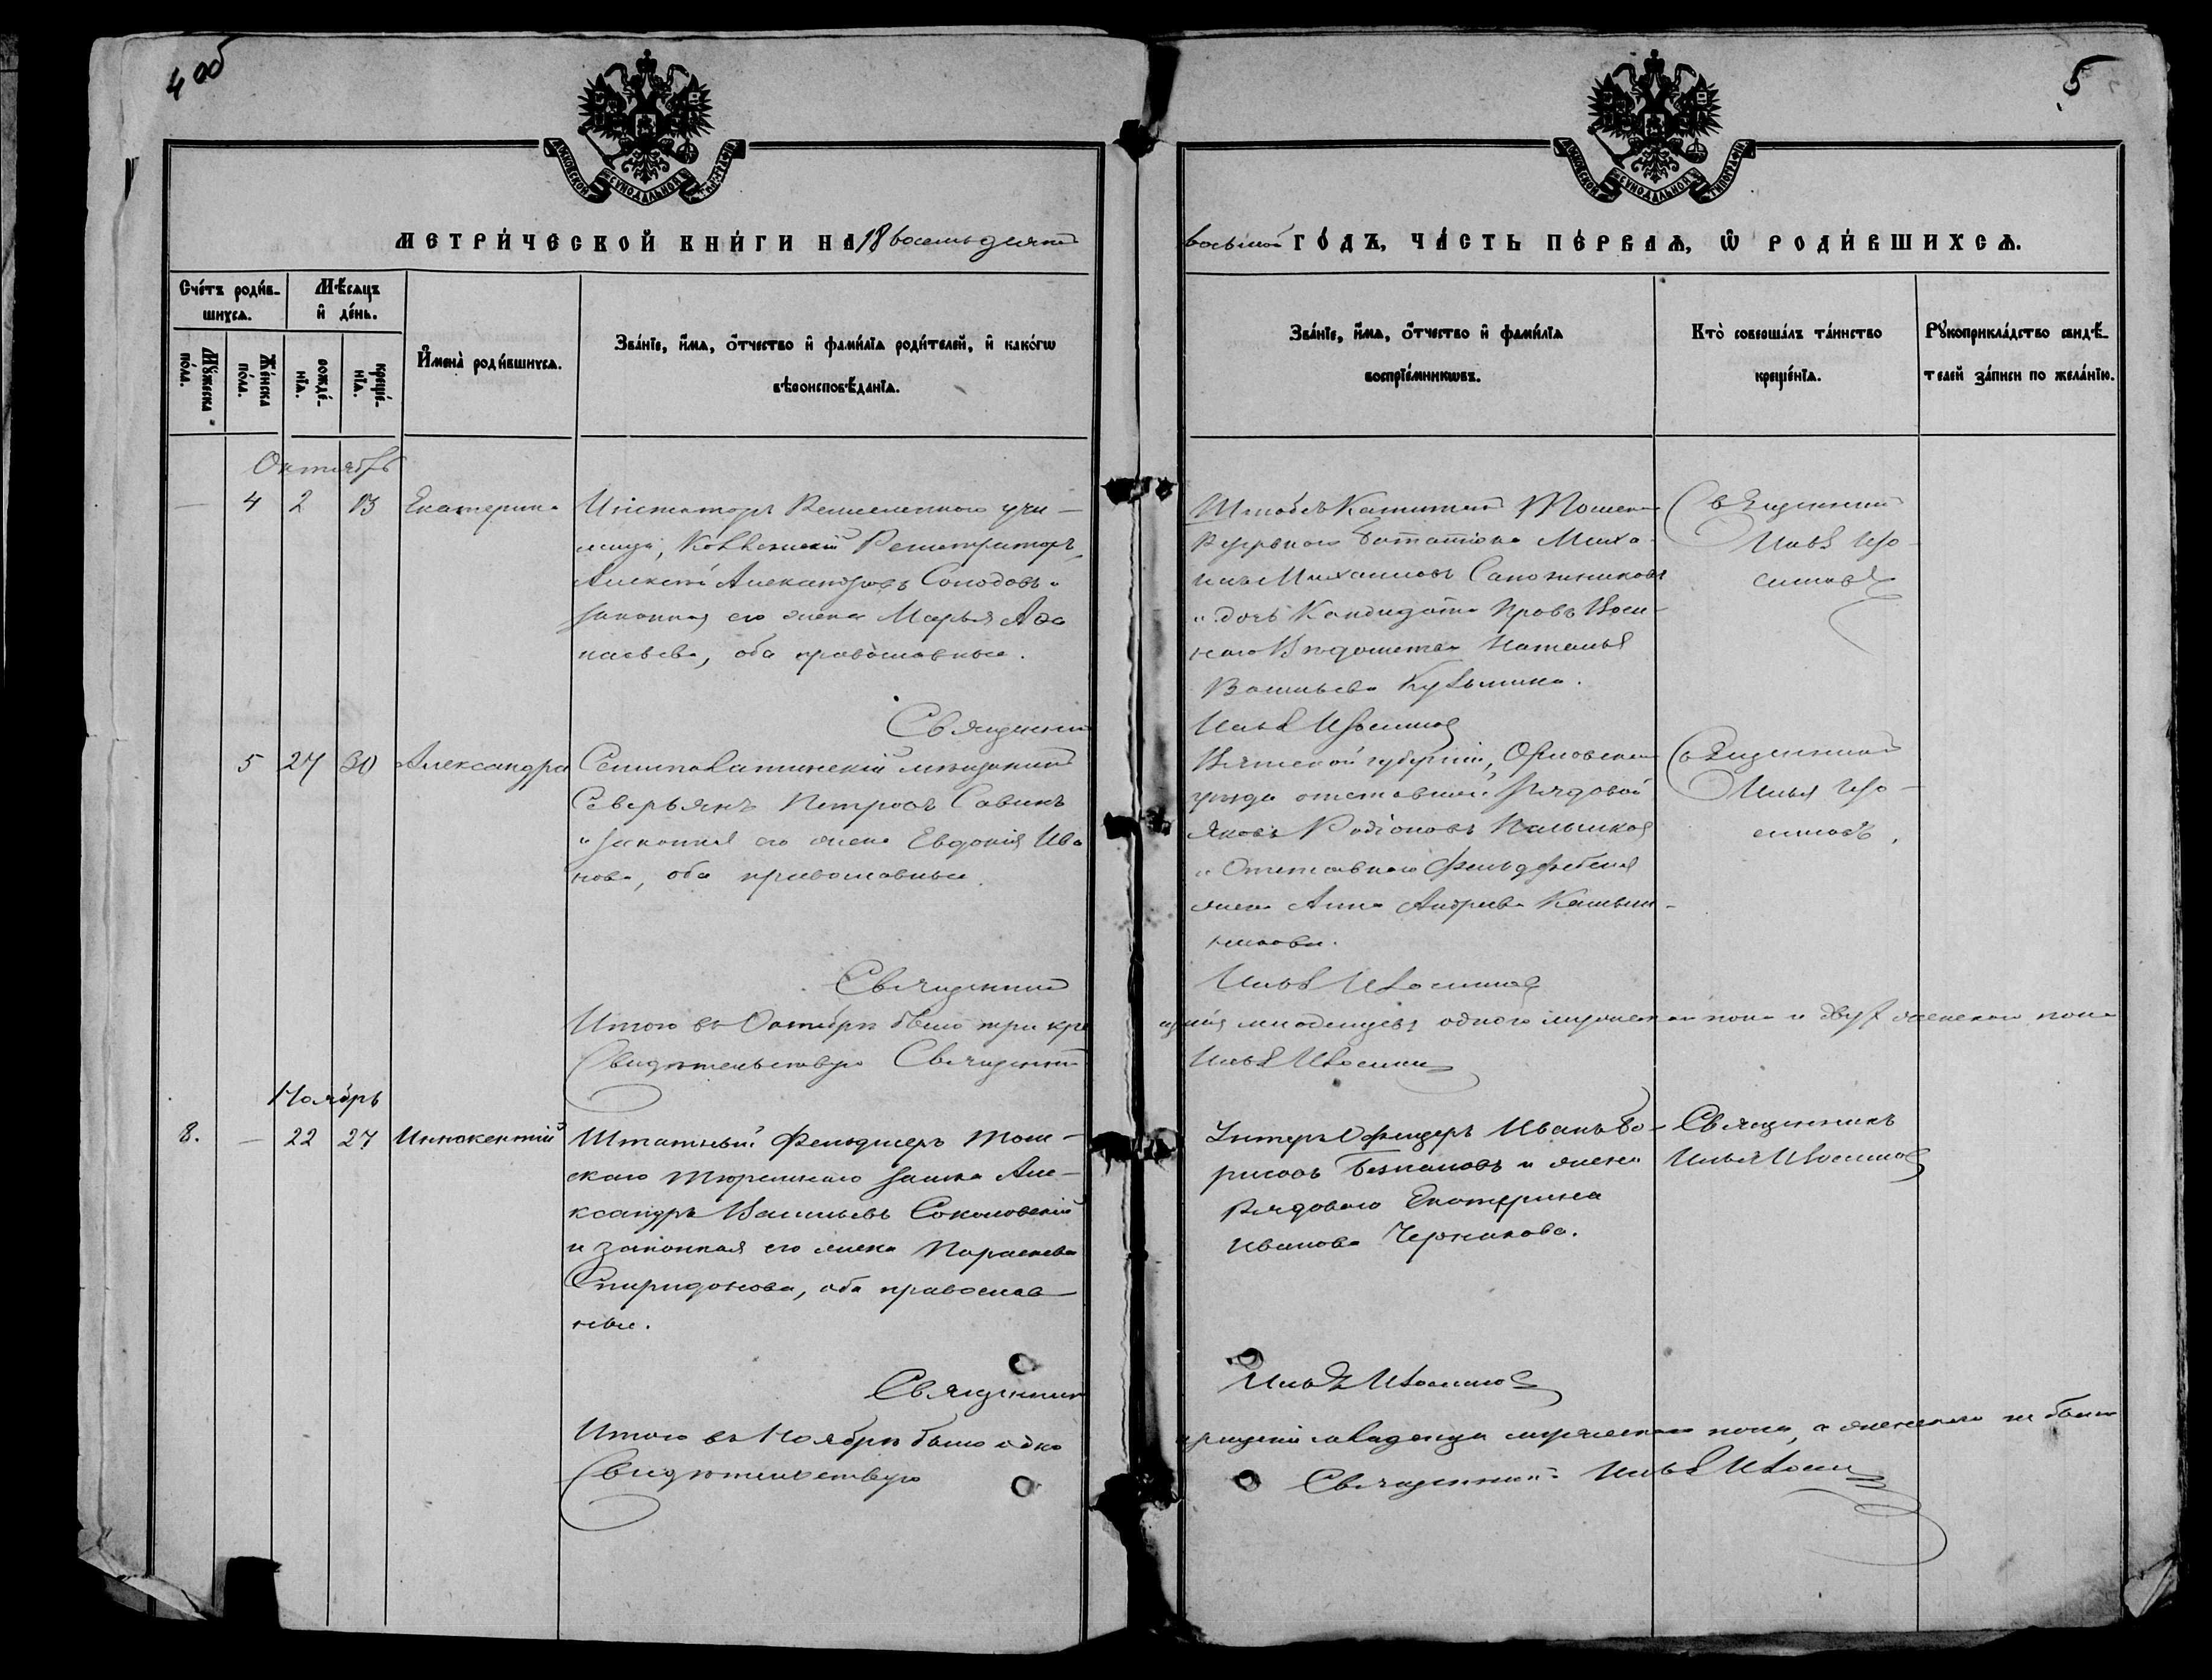 4 об
5
МОСКОВСКОЙ СУНОДАЛЬНОЙ ТИПОГРАФІИ
МОСКОВСКОЙ СУНОДАЛЬНОЙ ТИПОГРАФІИ
МЕТРИ́ЧЕСКОЙ КНИ́ГИ НА 18 восемьдесят
восьмой ГО́ДЪ, ЧА́СТЬ ПЕ́РВАѦ, Ѡ РОДИ́ВШИХСѦ.
Сче́тъ роди́в-
шихсѧ.
Мꙋ́жеска по́ла.
Же́нска по́ла.
Мѣ́сѧцъ
и҆ де́нь.
рожде́-
нїѧ.
креще́-
нїѧ.
И҆мена̀ роди́вшихсѧ.
Зва́нїе, и҆́мѧ, ѻ҆́тчество и҆ фами́лїѧ роди́телей, и҆ како́гѡ
вѣроисповѣ́данїѧ.
Зва́нїе, и҆́мѧ, ѻ҆́тчество и҆ фами́лїѧ
воспрїе́мникѡвъ.
Кто̀ соверша́лъ та́инство
креще́нїѧ.
Рꙋкоприкла́дство свидѣ́-
телей за́писи по жела́нїю.
Октябрь
— 4 2 13 Екатерина
Инспекторъ Ремесленного учи-
лища, Коллежскій Регистраторъ
Алексѣй Александровъ Солодовъ и
законная его жена Марья Афа
насьева, оба православные.
Священникъ
Штабсъ Капитанъ Томска
Резервнаго Баталіона Миха
илъ Михаиловъ Сапожниковъ
и дочь Кандидата Правъ Воен-
наго Вѣдомства Наталья
Васильева Кузьмина.
Илья Изосимов
Священник
Илья Изо-
симовъ
5 27 30 Александра
Семипалатинскій мѣщанинъ
Северьянъ Петровъ Савинъ
и законная его жена Евдокія Ива
нова, оба православные.
Священникъ
Вятской губерніи, Орловскаго
уѣзда отставной рядовой
Яковъ Родіоновъ
и Отставного Фельдфебеля
жена Анна Андреева
Илья Изосимов
Священникъ
Илья Изо-
симовъ.
Итого въ Октябрѣ было три кре
щенія младенцевъ одного мужеска пола и двухъ женскаго пола
Свидѣтельствую Священникъ
Илья Изосимов
Ноябрь
8. — 22 27 Иннокентій
Штатный Фельдшеръ Том-
скаго тюремнаго замка Але-
ксандръ Васильевъ Соколовскій
и законная его жена Параскева
Спиридонова, оба православ-
ные.
Священник
Унтеръ Офицеръ Иванъ Бо-
рисовъ и жена
Рядового Екатерина
Иванова Черникова.
Илья Изосимов
Священникъ
Илья Изосимов
Итого въ Ноябрѣ было одно
крещеніе младенца мужескаго пола, а женскаго не было
Свидѣтельствую
Священникъ Илья Изосимов